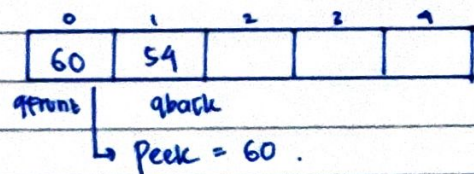 0 1 2 3 4
60 54
qfront qback
↳ Peek = 60 .